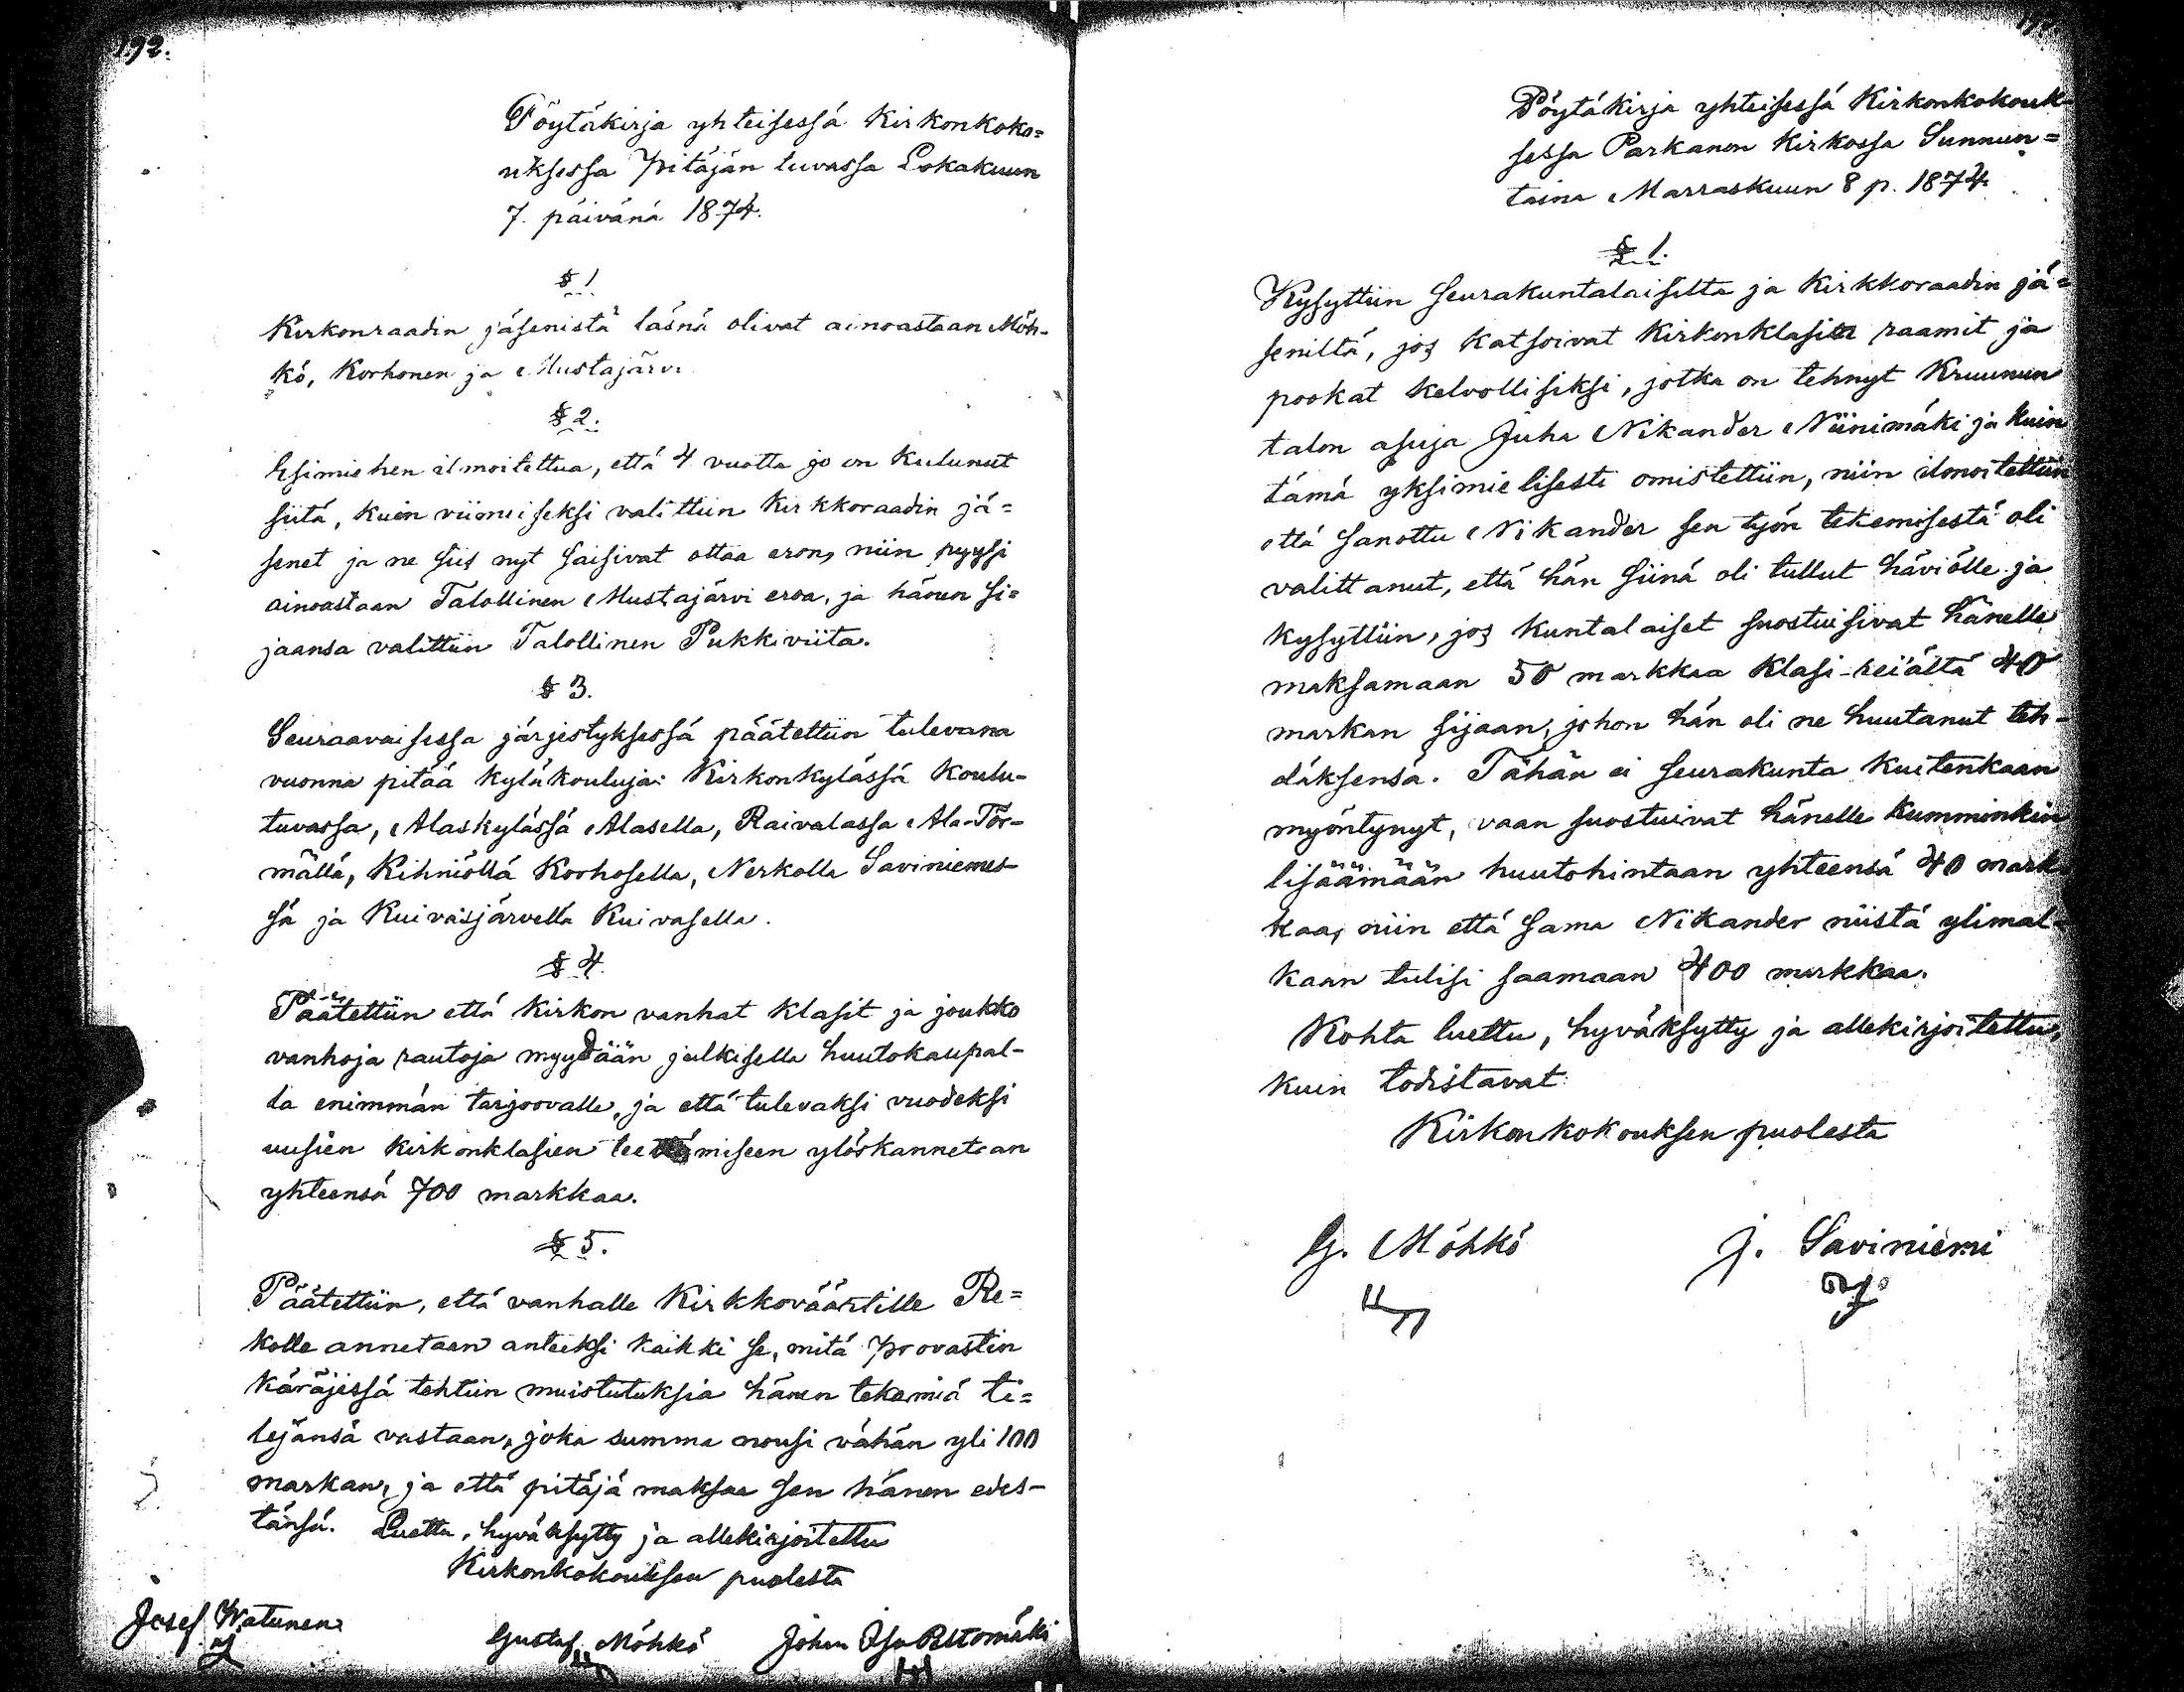 192.
Pöytäkirja yhteisessä Kirkonkoko=
uksessa Pitäjän tuvassa Lokakuun
7. päivänä 1874.
§ 1
Kirkonraadin jäsenistä läsnä olivat ainoastaan Möh-
kö, Korhonen ja Mustajärvi
§ 2.
Esimiehen ilmoitettua, että 4 vuotta jo on kulunut
siitä, kuin viimeiseksi valittiin Kirkkoraadin jä=
senet ja ne siis nyt saisivat ottaa eron, niin pyysi
ainoastaan Talollinen Mustajärvi eroa, ja hänen si=
jaansa valittiin Talollinen Pukkiviita.
§ 3.
Seuraavaisessa järjestyksessä päätettiin tulevana
vuonna pitää kyläkouluja: Kirkonkylässä Koulu-
tuvassa, Alaskylässä Alasella, Raivalassa Ala-Tör-
mällä, Kihniöllä Korhosella, Nerkolla Saviniemes-
sä ja Kuivasjärvellä Kuivasella.
§ 4.
Päätettiin että Kirkon vanhat klasit ja joukko
vanhoja rautoja myydään julkisella huutokaupal-
la enimmän tarjoovalle, ja että tulevaksi vuodeksi
uusien kirkonklasien teettämiseen ylöskannetaan
yhteensä 700 markkaa.
§ 5.
Päätettiin, että vanhalle Kirkkoväärtille Re=
kolle annetaan anteeksi kaikki se, mitä Provastin
käräjissä tehtiin muistutuksia hänen tekemiä ti=
lejänsä vastaan, joka summa nousi vähän yli 100
markan, ja että pitäjä maksaa sen hänen edes-
tänsä. Luettu, hyväksytty ja allekirjoitettu
Kirkonkokouksen puolesta
Josef Watunen
Gustaf Möhkö Johan Peltomäki
Pöytäkirja yhteisessä Kirkonkokouk-
sessa Parkanon Kirkossa Sunnun=
taina Marraskuun 8 p. 1874.
§ 1.
Kysyttiin seurakuntalaisilta ja Kirkkoraadin jä=
seniltä, jos katsoivat Kirkonklasin raamit ja
pookat kelvollisiksi, jotka on tehnyt Kruunun
talon asuja Juha Nikander Niinimäki ja kuin
tämä yksimielisesti omistettiin, niin ilmoitettiin
että sanottu Nikander sen työn tekemisestä oli
valittanut, että hän siinä oli tullut häviölle ja
kysyttiin, jos kuntalaiset suostuisivat hänelle
maksamaan 50 markkaa klasi-reiältä 40
markan sijaan, johon hän oli ne huutanut teh-
däksensä. Tähän ei seurakunta kuitenkaan
myöntynyt, vaan suostuivat hänelle kumminkin
lisäämään huutohintaan yhteensä 40 mark-
kaa, niin että sama Nikander niistä ylimal-
kaan tulisi saamaan 400 markkaa.
Kohta luettu, hyväksytty ja allekirjoitettu,
kuin todistavat:
Kirkonkokouksen puolesta
G. Möhkö J. Saviniemi